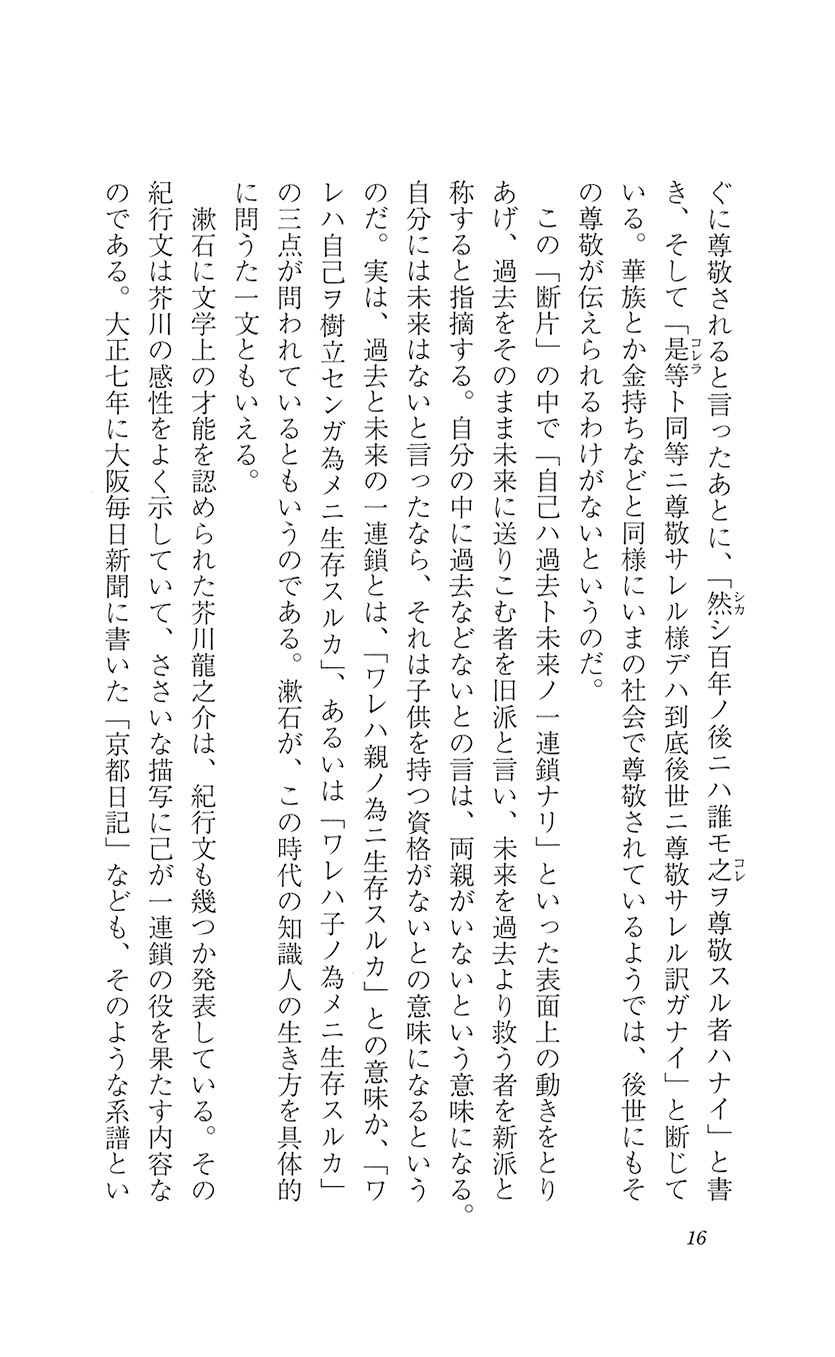 ぐに尊敬されると言ったあとに、「然シ百年ノ後ニハ誰モ之ヲ尊敬スル者ハナイ」と書
き、そして「是等ト同等ニ尊敬サレル様デハ到底後世ニ尊敬サレル訳ガナイ」と断じて
いる。華族とか金持ちなどと同様にいまの社会で尊敬されているようでは、後世にもそ
の尊敬が伝えられるわけがないというのだ。
この「断片」の中で「自己ハ過去ト未来ノ一連鎖ナリ」といった表面上の動きをとり
あげ、過去をそのまま未来に送りこむ者を旧派と言い、未来を過去より救う者を新派と
称すると指摘する。自分の中に過去などないとの言は、両親がいないという意味になる。
自分には未来はないと言ったなら、それは子供を持つ資格がないとの意味になるという
のだ。実は、過去と未来の一連鎖とは、「ワレハ親ノ為ニ生存スルカ」との意味か、「ワ
レハ自己ヲ樹立センガ為メニ生存スルカ」、あるいは「ワレハ子ノ為メニ生存スルカ」
の三点が問われているともいうのである。漱石が、この時代の知識人の生き方を具体的
に問うた一文ともいえる。
漱石に文学上の才能を認められた芥川龍之介は、紀行文も幾つか発表している。その
紀行文は芥川の感性をよく示していて、ささいな描写に己が一連鎖の役を果たす内容な
のである。大正七年に大阪毎日新聞に書いた「京都日記」なども、そのような系譜とい
16